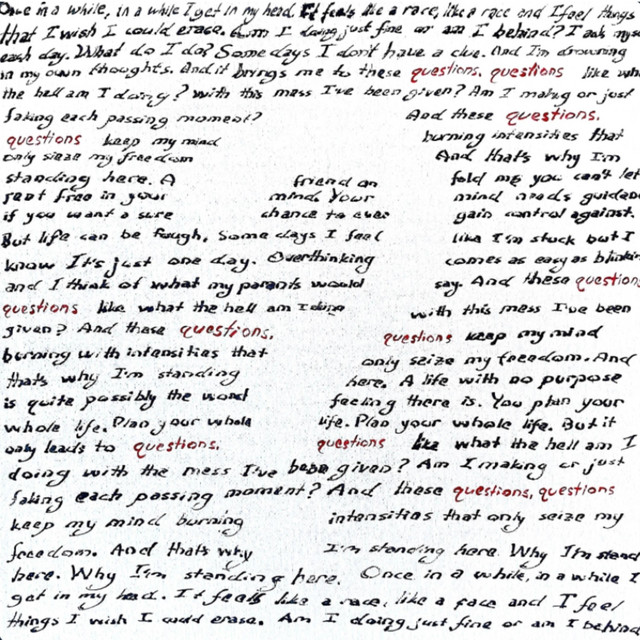 Once in a while, in a while I get in my head. It feels like a race, like a race and I feel things
that I wish I could erase. Am I doing just fine or am I behind? I ask myse
each day. What do I do? Some days I don't have a clue. And I'm drowning
in my own thoughts. And it brings me to these questions, questions like wha
the hell am I doing? with this mess I've been given? Am I making or just
faking each passing moment? And these questions,
questions keep my mind burning intensities that
only sieze my freedom And that's why I'm
standing here. A friend on told me you can't let
rent free in your mind. Your mind needs guidan
if you want a sure chance to ever gain control against.
But life can be tough. Some days I feel like I'm stuck but I
know It's just one day. Overthinking comes as easy as blinkin
and I think of what my parents would say. And these question
questions like what the hell am I doing with this mess I've been
given? And these questions, questions keep my mind
burning with intensities that only seize my freedom. And
thats why I'm standing here. A life with no purpose
is quite possibly the worst feeling there is. You plan your
whole life. Plan your whole life. Plan your whole life. But it
only leads to questions, questions like what the hell am I
doing with the mess I've been given? Am I making or just
faking each passing moment? And these questions, questions
keep my mind burning intensities that only seize my
freedom. And thats why I'm standing here. Why I'm stand
here. Why I'm standing here. Once in a while, in a while I
get in my head. It feels like a race, like a race and I feel
things I wish I could erase. Am I doing just fine or am I behind